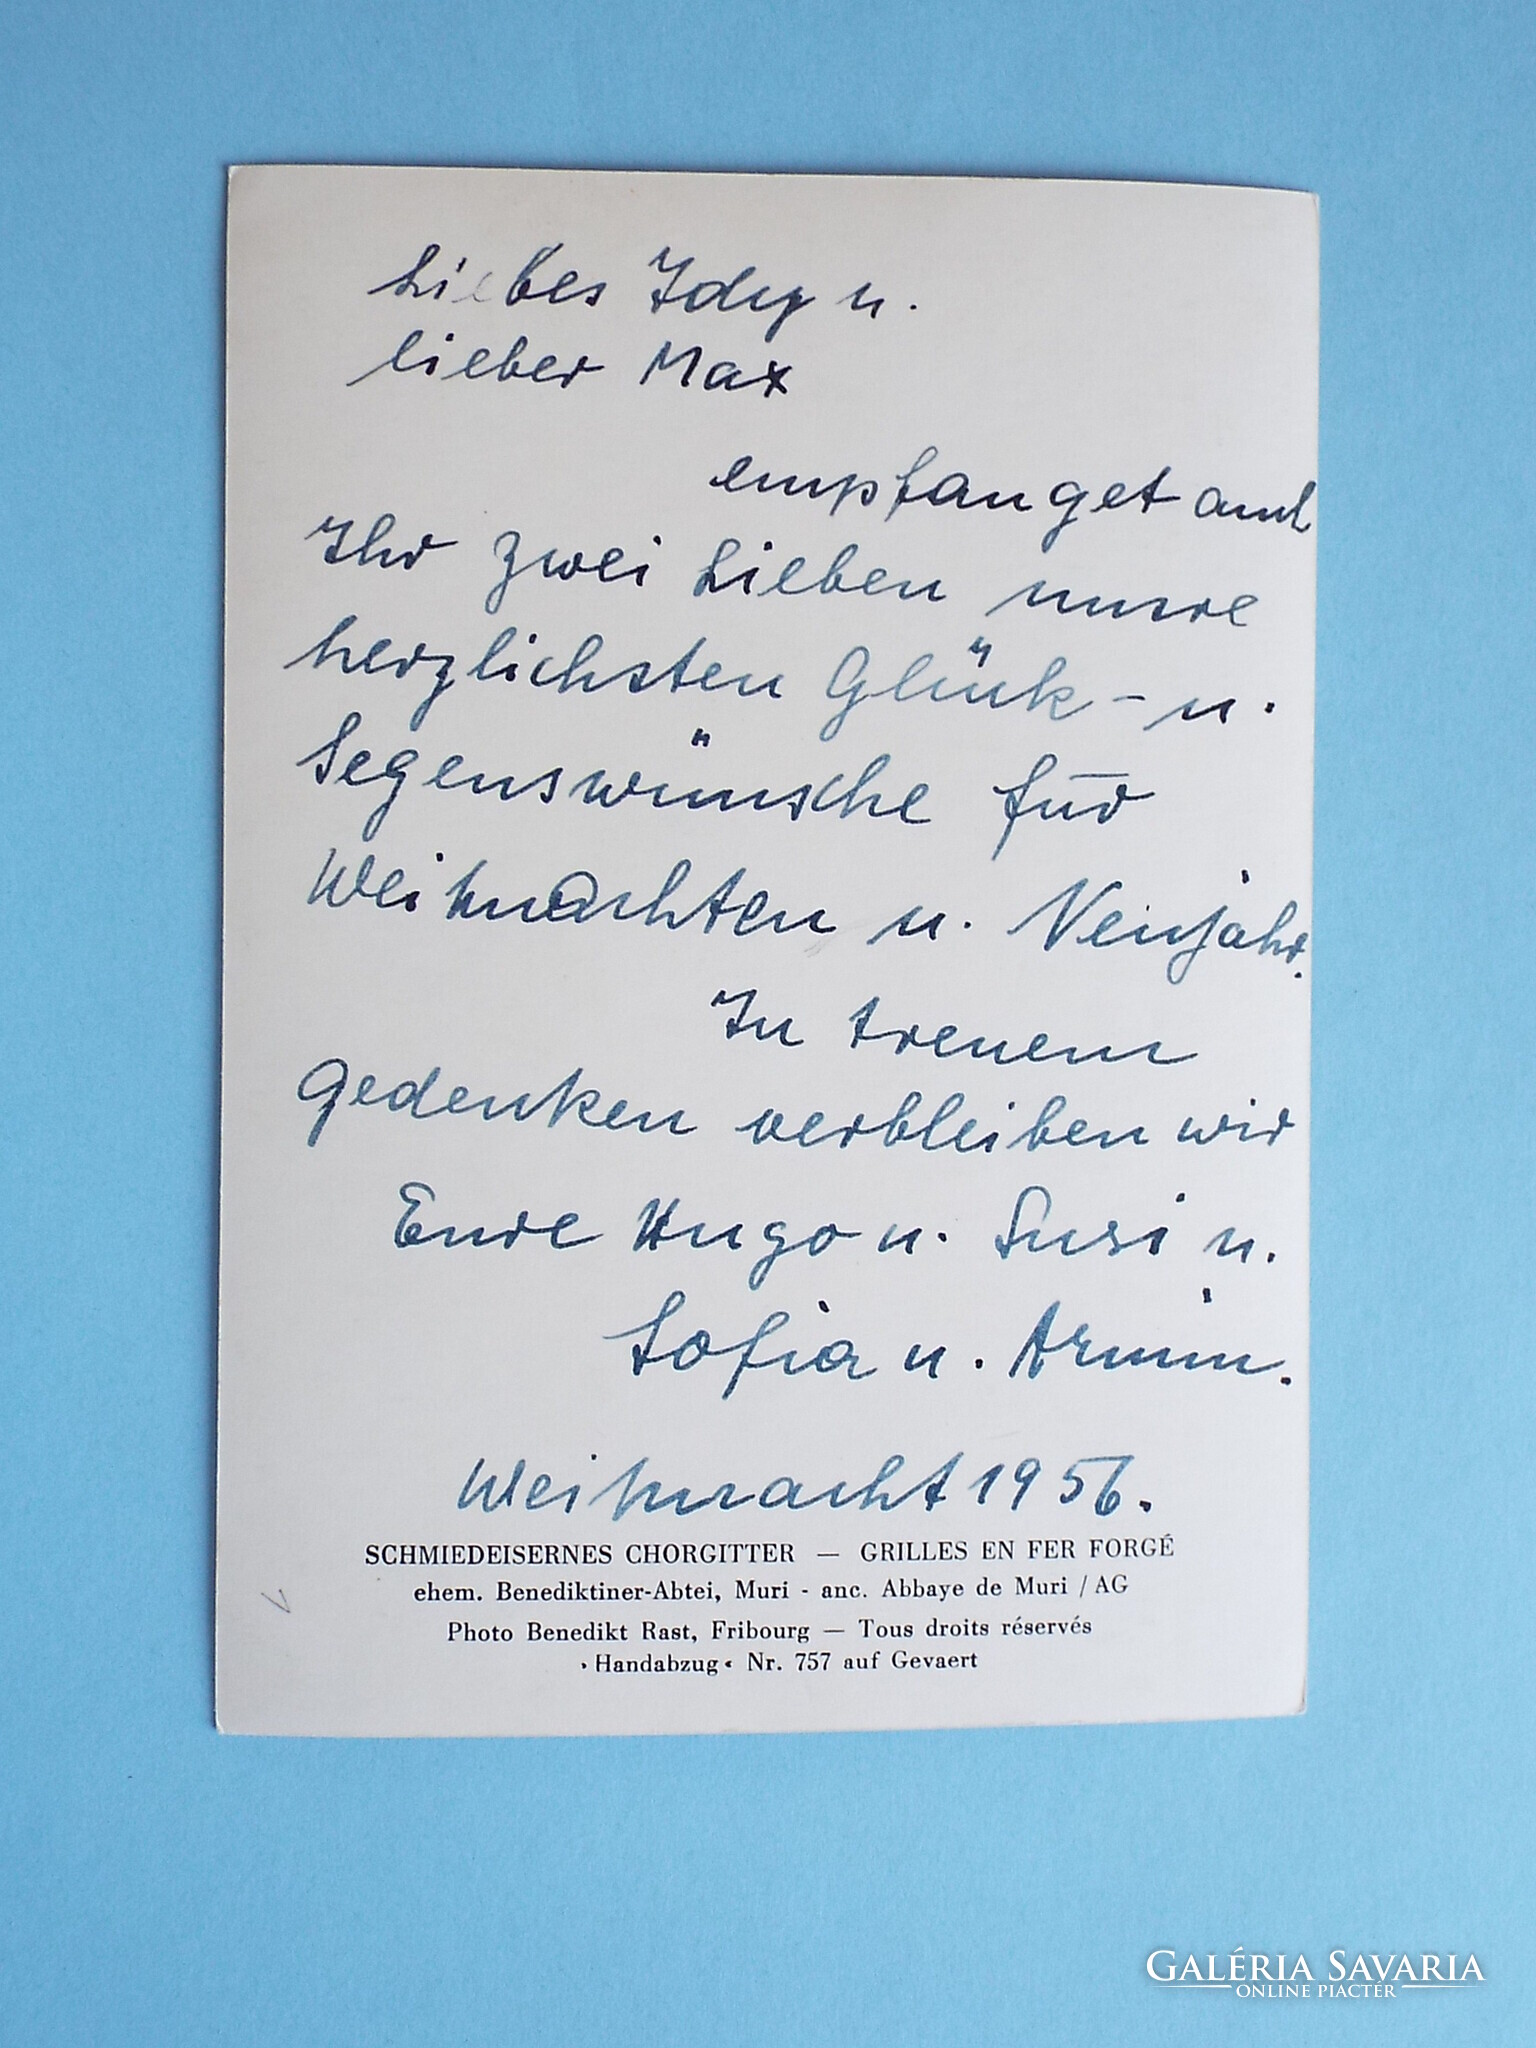 Liebes Idy u.
lieber Max
empfanget auch
Ihr zwei Lieben unsre
herzlichsten Glück- u.
Segenswünsche für
Weihnachten u. Neujahr.
In treuem
Gedenken verbleiben wir
Eure Hugo u. Susi u.
Sofia u. Armin.
Weihnacht 1956.
SCHMIEDEISERNES CHORGITTER — GRILLES EN FER FORGÉ
ehem. Benediktiner-Abtei, Muri - anc. Abbaye de Muri / AG
Photo Benedikt Rast, Fribourg — Tous droits réservés
›Handabzug‹ Nr. 757 auf Gevaert
GALÉRIA SAVARIA
ONLINE PIACTÉR